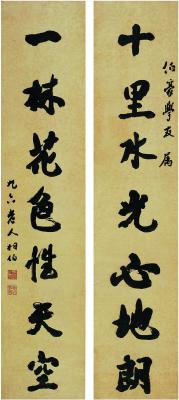 伯豪學友属
十里水光心地朗
一林花色性天空
九六老人柏伯